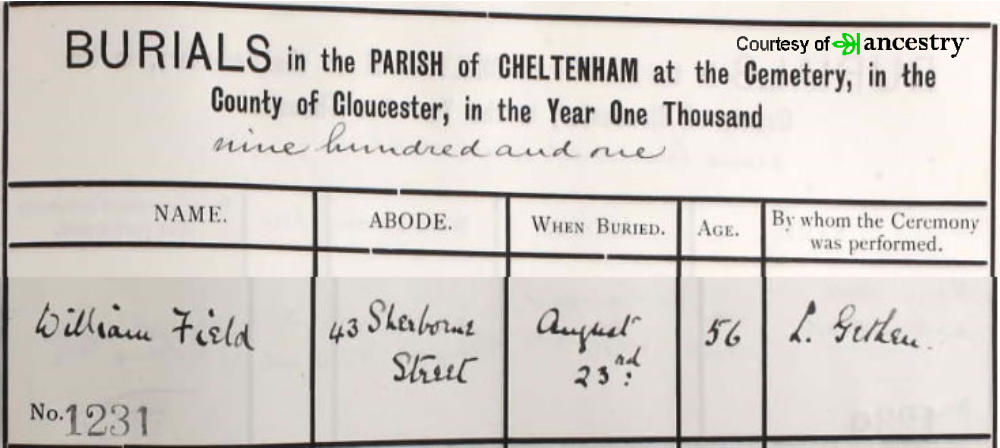 Courtesy of ancestry
BURIALS in the PARISH of CHELTENHAM at the Cemetery, in the
County of Gloucester, in the Year One Thousand
nine hundred and one
NAME. ABODE. WHEN BURIED. AGE. By whom the Ceremony
was performed.
William Field 43 Sherborne August 56 L. Gethen.
Street 23rd:
No. 1231